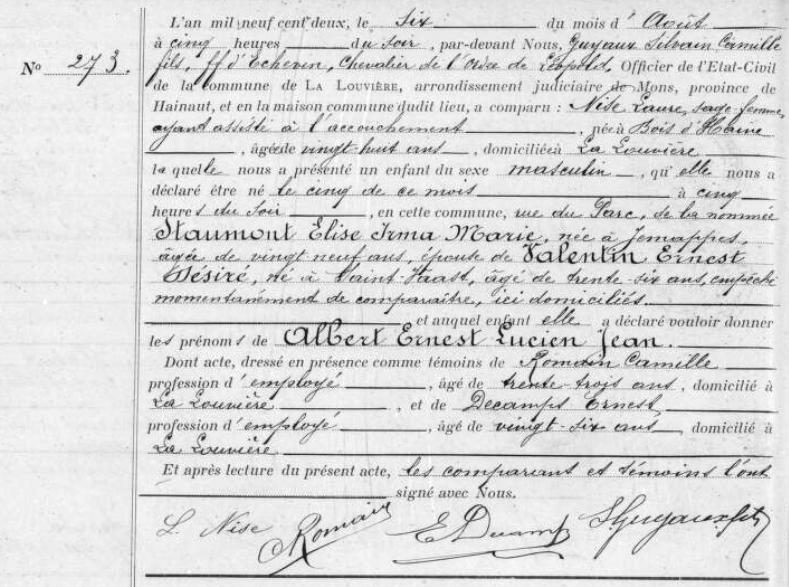 L'an mil neuf cent deux, le six du mois d'Août
à cinq heures du soir, par-devant Nous, Guyaux Silvain Camille
N° 273.
fils, ff d'Echevin, Chevalier de l'Ordre de Léopold, Officier de l'Etat-Civil
de la commune de LA LOUVIÈRE, arrondissement judiciaire de Mons, province de
Hainaut, et en la maison commune dudit lieu, a comparu : Nise Laure, sage-femme,
ayant assisté à l'accouchement, née à Bois d'Haine
, âgée de vingt-huit ans, domiciliée à La Louvière
laquelle nous a présenté un enfant du sexe masculin, qu'elle nous a
déclaré être né le cinq de ce mois à cinq
heures du soir, en cette commune, rue du Parc, de la nommée
Staumont Elise Irma Marie, née à Jemappes,
âgée de vingt neuf ans, épouse de Valentin Ernest
Désiré, né à Saint-Vaast, âgé de trente-six ans, empêché
momentanément de comparaître, ici domiciliés
et auquel enfant elle a déclaré vouloir donner
les prénoms de Albert Ernest Lucien Jean.
Dont acte, dressé en présence comme témoins de Romain Camille
profession d'employé, âgé de trente-trois ans, domicilié à
La Louvière, et de Decamps Ernest,
profession d'employé, âgé de vingt-six ans, domicilié à
La Louvière
Et après lecture du présent acte, les comparant et témoins l'ont
signé avec Nous.
L. Nise Romain E Decamps SGuyaux fils